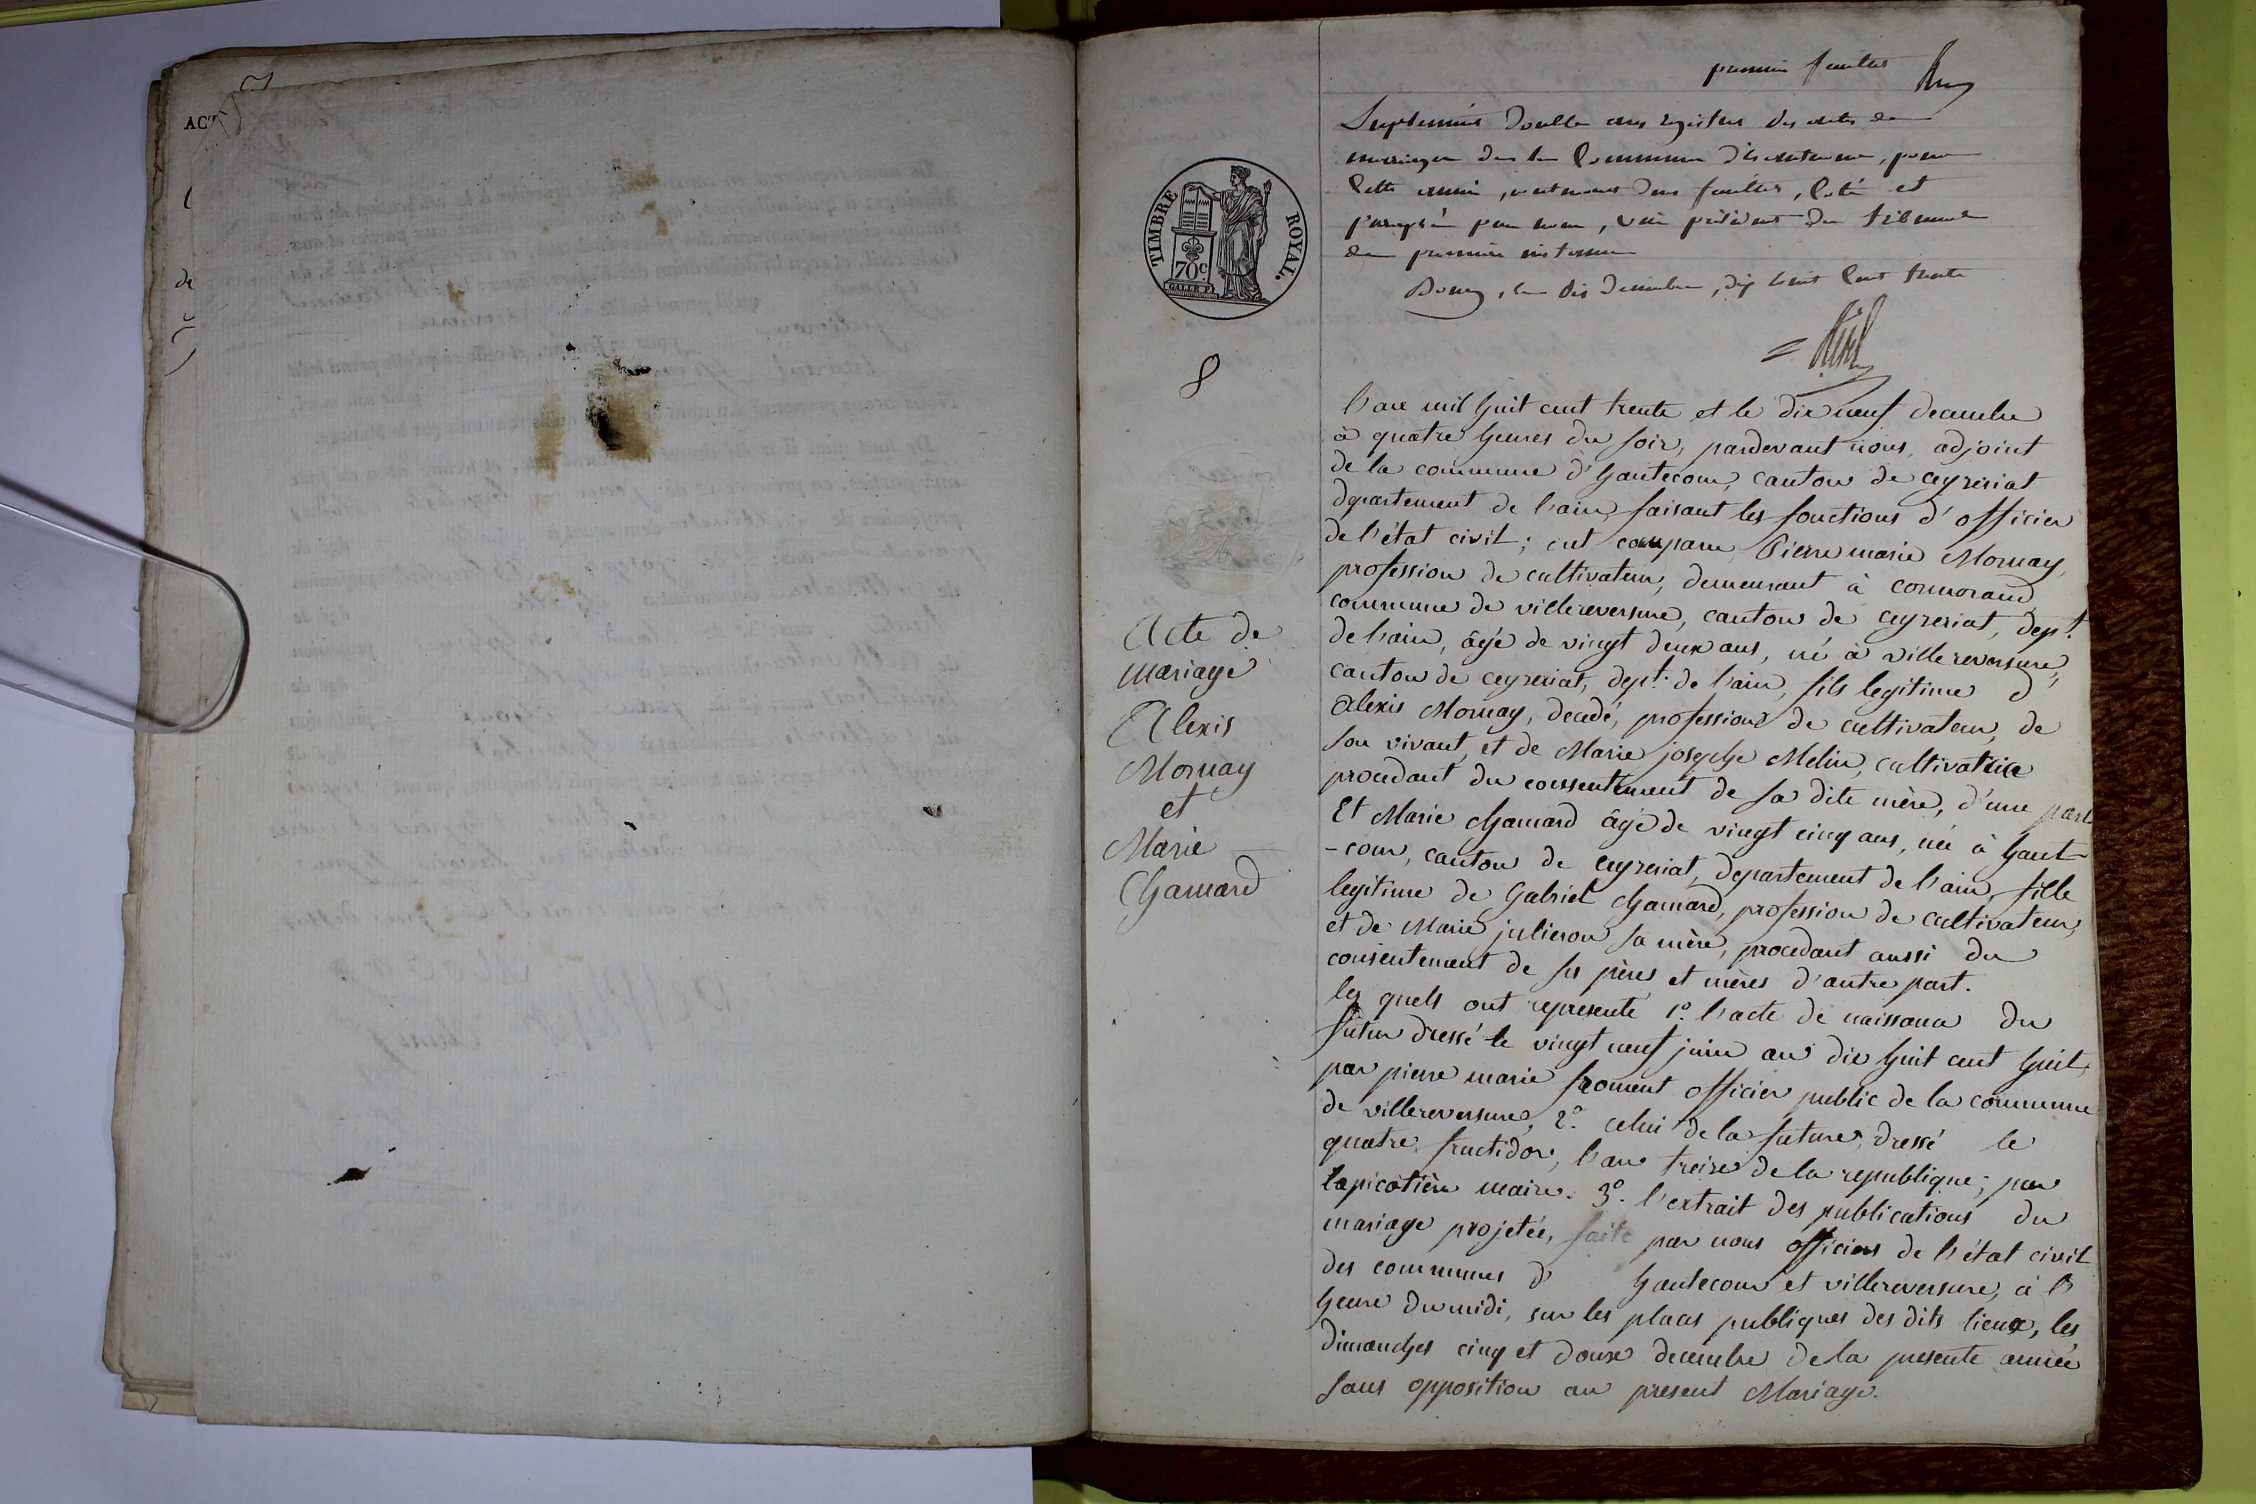 ACT
de
premier feuillet
Supplément double aux registres des actes de
mariages de la Commune d'hautecour, pour
cette année, contenant deux feuillets, coté et
paraphé par nous, vice président du tribunal
de première instance
Bourg, le dix decembre, dix huit cent trente
TIMBRE ROYAL.
70c
8
l'an mil huit cent trente et le dix neuf decembre
à quatre heures du soir, pardevant nous, adjoint
de la commune d'hautecour, canton de ceyzeriat
departement de l'ain, faisant les fonctions d'officier
de l'état civil; ont comparu Pierre marie Mornay,
profession de cultivateur, demeurant à cormorand
commune de villereversure, canton de ceyzeriat, dept.
de l'ain, âgé de vingt deux ans, né à villereversure,
canton de ceyzeriat, dept. de l'ain, fils legitime d'
alexis Mornay, decedé, profession de cultivateur, de
son vivant, et de Marie josephe Melin, cultivatrice
procedant du consentement de sa dite mère, d'une part
Et Marie chamard âgé de vingt cinq ans, née à haute-
-cour, canton de ceyzeriat, departement de l'ain, fille
legitime de Gabriel chamard, profession de cultivateur,
et de Marie julieron sa mère, procedant aussi du
consentement de ses pères et mères d'autre part.
les quels ont representé 1º. l'acte de naissance du
futur dressé le vingt neuf juin an dix huit cent huit,
par pierre marie froment officier public de la commune
de villereversure, 2º. celui de la future, dressé le
quatre fructidor, l'an treize de la republique; par
Lapicotière maire. 3º. l'extrait des publications du
mariage projetée, faite par nous officiers de l'état civil
des communes d' hautecour et villereversure, à l'
heure du midi, sur les places publiques des dits lieux, les
dimanches cinq et douze decembre de la presente année
sans opposition au present Mariage.
Acte de
mariage
Alexis
Mornay
et
Marie
Chamard